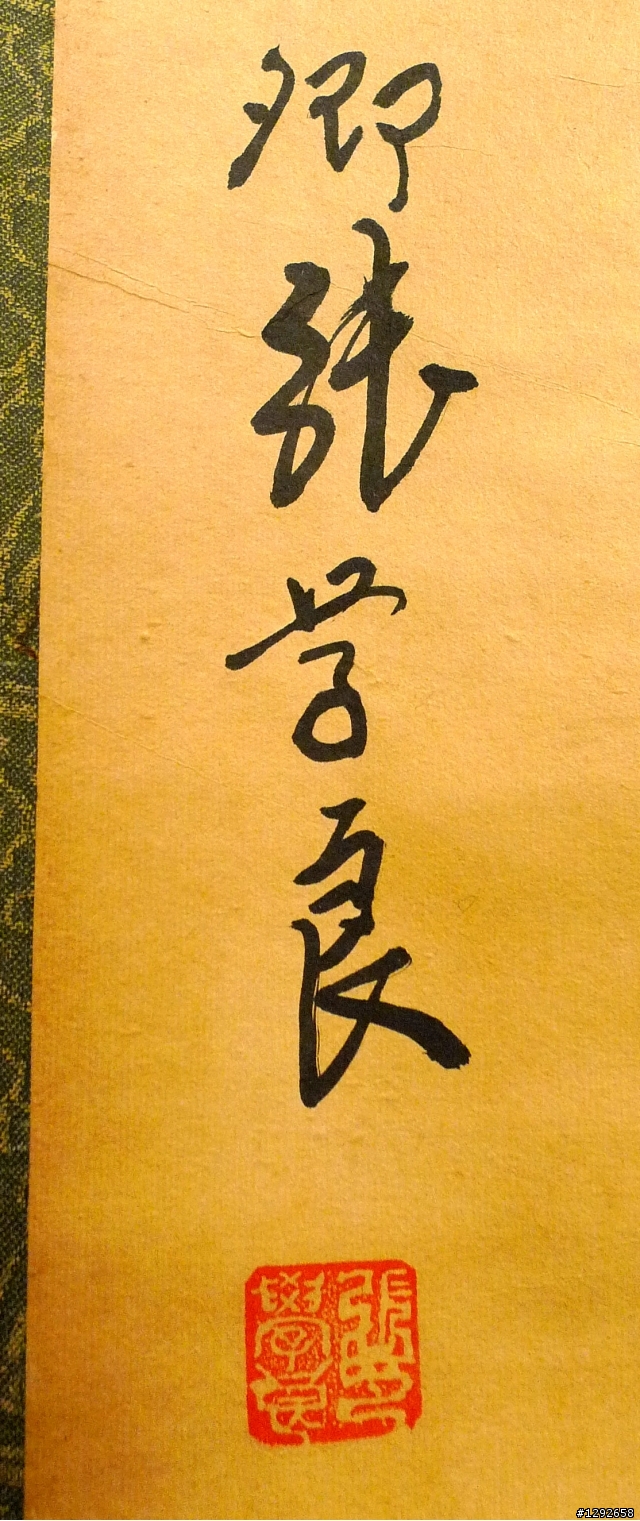 卿张学良
張學良
#1292658